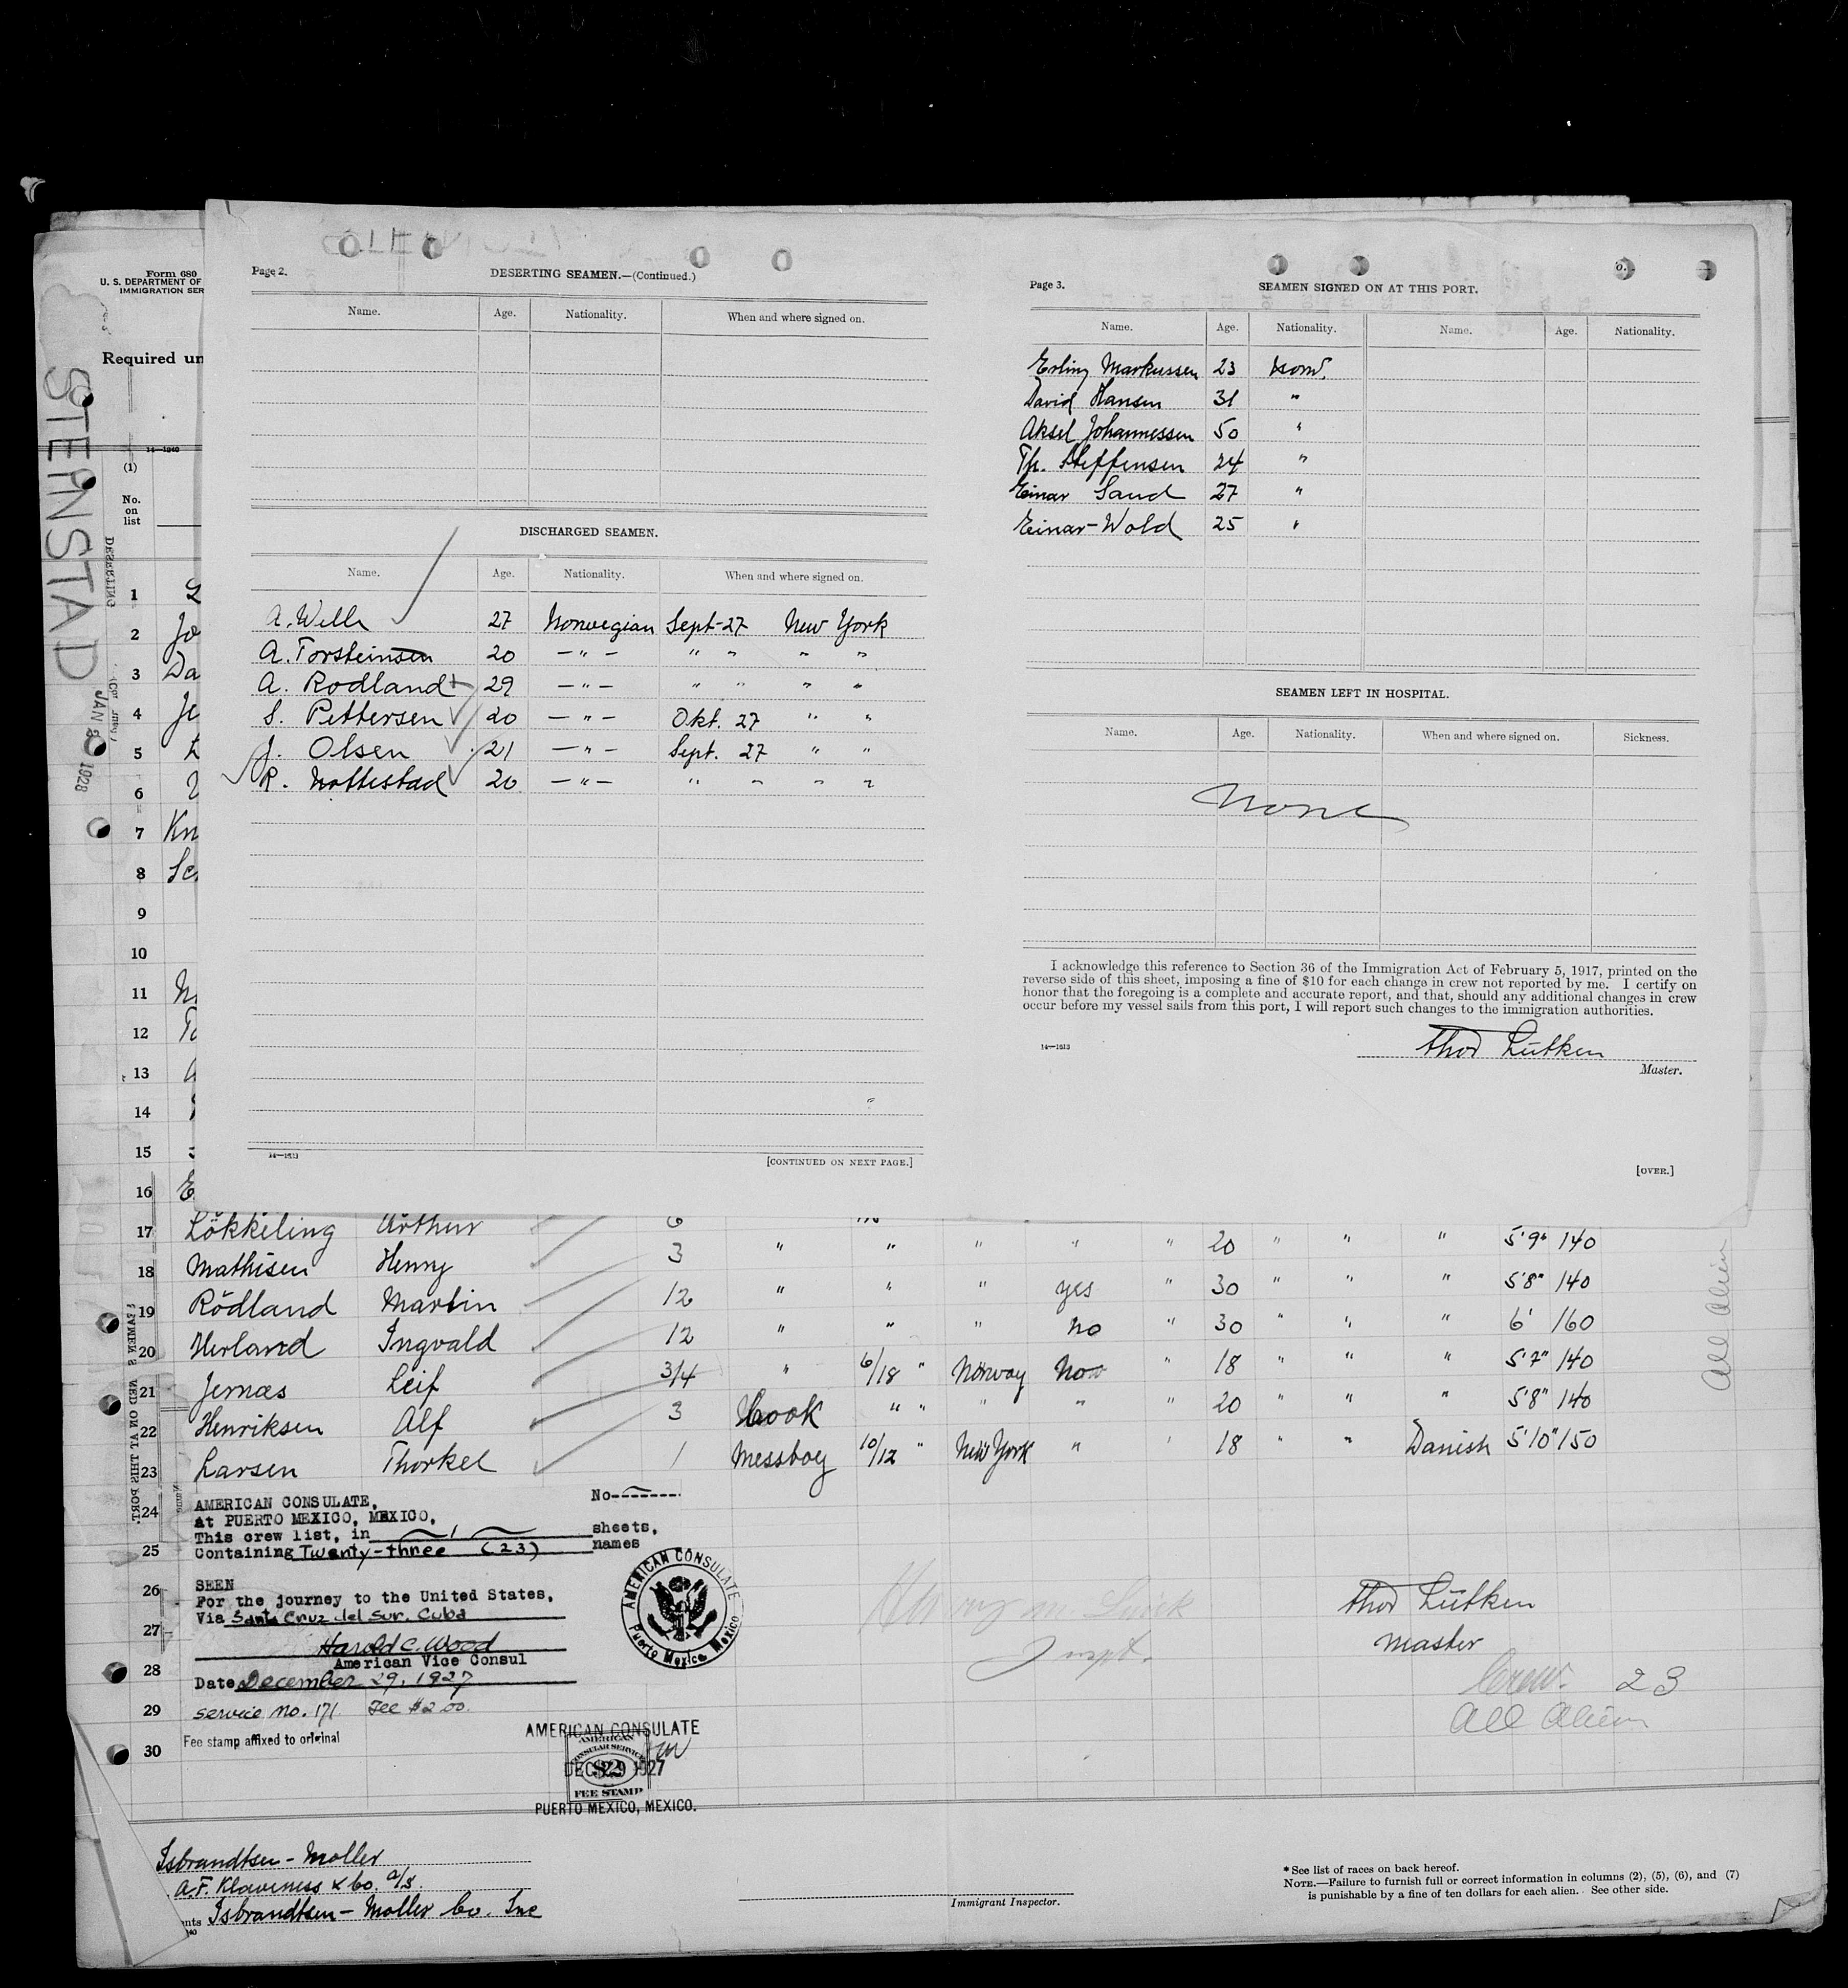 Form 680
U. S. DEPARTMENT OF
IMMIGRATION SER
Required un
STEINSTAD
JAN 1928
14—1240
(1)
No.
on
list
Page 2.
DESERTING SEAMEN.—(Continued.)
Name. Age. Nationality. When and where signed on.
DISCHARGED SEAMEN.
Name. Age. Nationality. When and where signed on.
A. Welle 27 Norwegian Sept-27 New York
A. Torsteinsen 20 —"— " " " "
A. Rodland 29 —"— " " " "
S. Pettersen 20 —"— Okt. 27 " "
J. Olsen 21 —"— Sept. 27 " "
R. Nottestad 20 —"— " " " "
14—1513
[CONTINUED ON NEXT PAGE.]
Page 3.
SEAMEN SIGNED ON AT THIS PORT.
Name. Age. Nationality. Name. Age. Nationality.
Erling Markussen 23 Norw.
David Hansen 31 "
Aksel Johannessen 50 "
Th. Steffensen 24 "
Einar Sand 27 "
Einar-Wold 25 "
SEAMEN LEFT IN HOSPITAL.
Name. Age. Nationality. When and where signed on. Sickness.
None
I acknowledge this reference to Section 36 of the Immigration Act of February 5, 1917, printed on the
reverse side of this sheet, imposing a fine of $10 for each change in crew not reported by me. I certify on
honor that the foregoing is a complete and accurate report, and that, should any additional changes in crew
occur before my vessel sails from this port, I will report such changes to the immigration authorities.
14—1513
Thod Lütken
Master.
[OVER.]
1
2 Jo
3 Da
4 Je
5
6
7 Kn
8
9
10
11
12
13
14
15
16 E
17 Lökkeling Arthur 6 " " " " " 20 " " " 5'9" 140
18 Mathisen Henry 3 " " " yes " 30 " " " 5'8" 140
19 Rödland Martin 12 " " " no " 30 " " " 6' 160
20 Herland Ingvald 12 " 6/18 " Norway No " 18 " " " 5'7" 140
21 Jernæs Leif 3/4 " " " " 20 " " " 5'8" 140
22 Henriksen Alf 3 Cook 10/12 " New York " " 18 " " Danish 5'10" 150
23 Larsen Thorkel 1 Messboy
All Alien
24
25
26
27
28
29
30
AMERICAN CONSULATE, No-
At PUERTO MEXICO, MEXICO,
This crew list, in 1 sheets,
Containing Twenty-three (23) names
SEEN
For the journey to the United States,
Via Santa Cruz del Sur, Cuba
Harold C. Wood
American Vice Consul
Date December 29, 1927
Service No. 171. Fee $2.00.
Fee stamp affixed to original
AMERICAN CONSULATE
Puerto Mexico, Mexico
AMERICAN CONSULATE
AMERICAN
CONSULAR SERVICE
$2
DEC 29 1927
FEE STAMP
PUERTO MEXICO, MEXICO.
Inspt.
Thod Lütken
Master
Crew. 23
All Alien
Isbrandtsen - Moller
A.F. Klaveness & Co. A/S.
nts Isbrandtsen - Moller Co. Inc
Immigrant Inspector.
* See list of races on back hereof.
NOTE.—Failure to furnish full or correct information in columns (2), (5), (6), and (7)
is punishable by a fine of ten dollars for each alien. See other side.